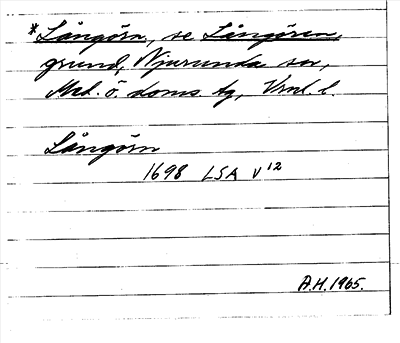 *Långörn, se Långören,
grund, Njurunda sn,
Med. ö. doms. tg, Vrnl. l.
Långörn
1698 LSA V12
A.H. 1965.